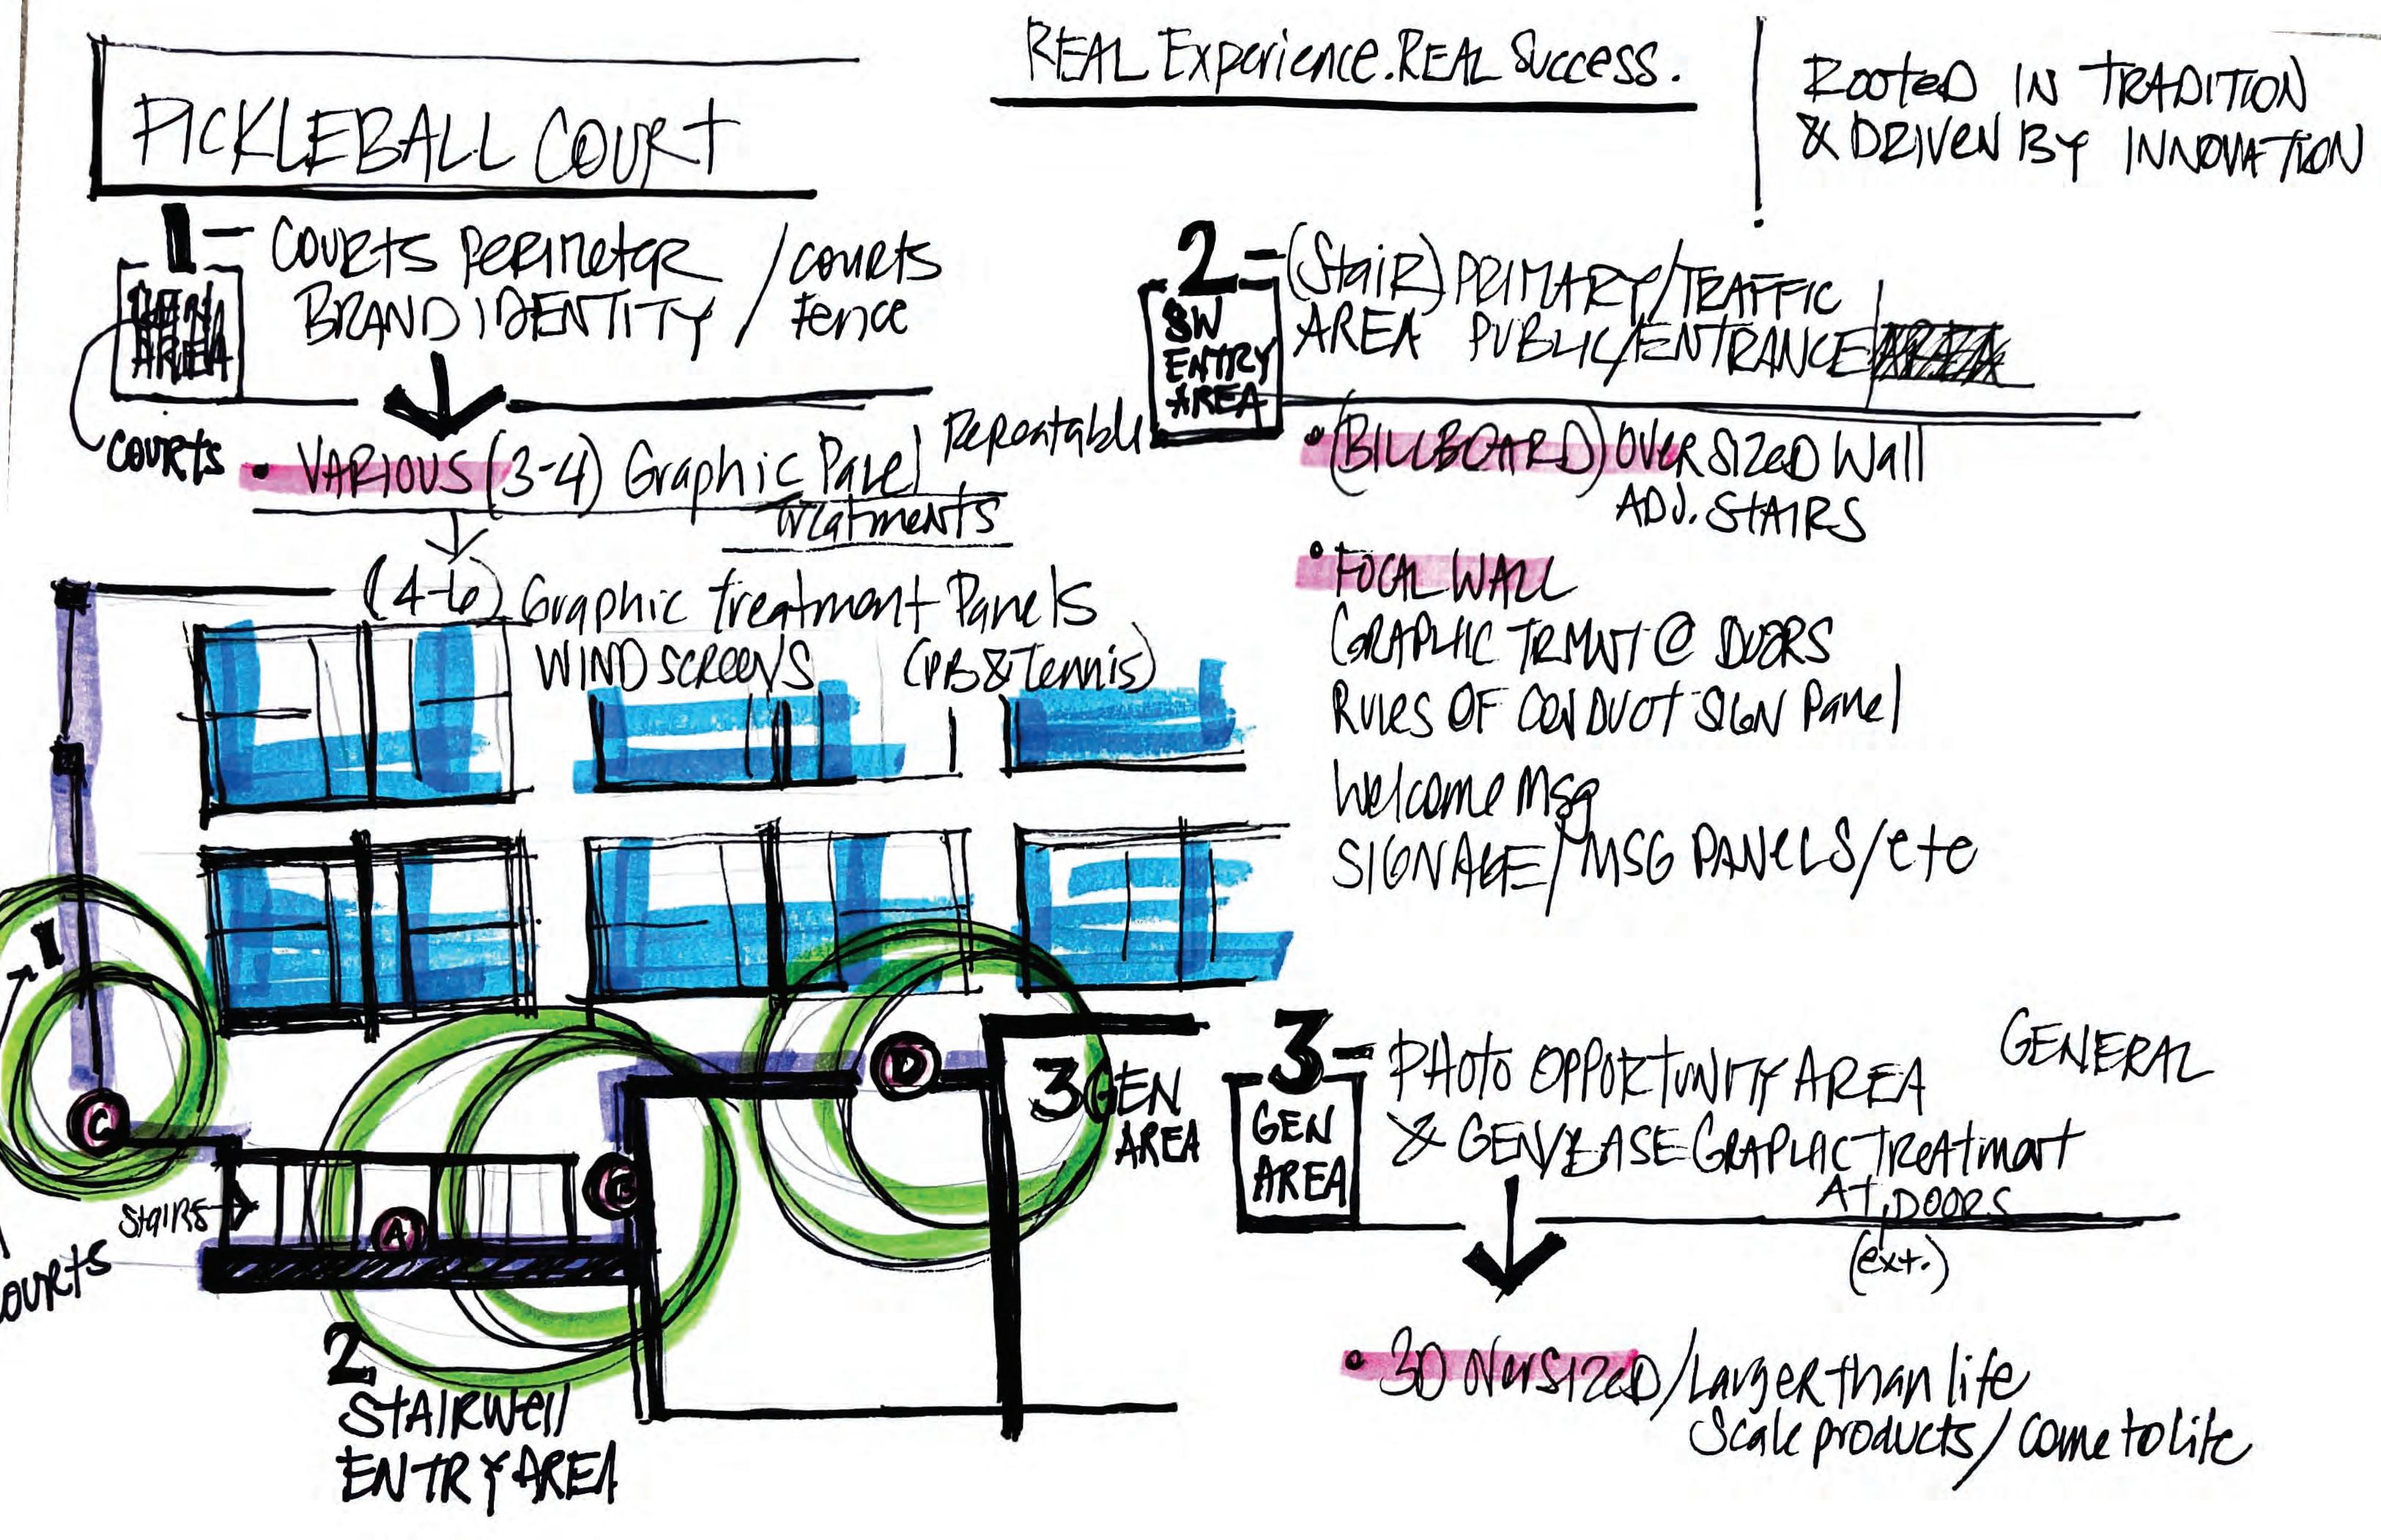 PICKLEBALL COURT
REAL Experience. REAL Success.
Rooted IN TRADITION
& DRIVEN BY INNOVATION
1 - COURTS Perimeter / COURTS
BRAND IDENTITY / Fence
AREA
COURTS
• VARIOUS (3-4) Graphic Panel Repeatable
Treatments
(4-6) Graphic treatment Panels
WIND SCREENS (PB & Tennis)
2 - (Stair) PRIMARY/TRAFFIC
AREA PUBLIC/ENTRANCE
SW
ENTRY
AREA
• (BILLBOARD) OVERSIZED Wall
ADJ. STAIRS
• FOCAL WALL
GRAPHIC TRMNT @ DOORS
Rules OF CONDUCT SIGN Panel
Welcome Msg
SIGNAGE/MSG PANELS/etc
1
C
STAIRS
COURTS
A
B
D
2
STAIRWell
ENTRY AREA
3 GEN
AREA
3 - PHOTO OPPORTUNITY AREA GENERAL
& GEN/BASE GRAPHIC TREATMENT
AT DOORS
(ext.)
GEN
AREA
• 3D OVERSIZED/Larger than life
Scale products/come to life